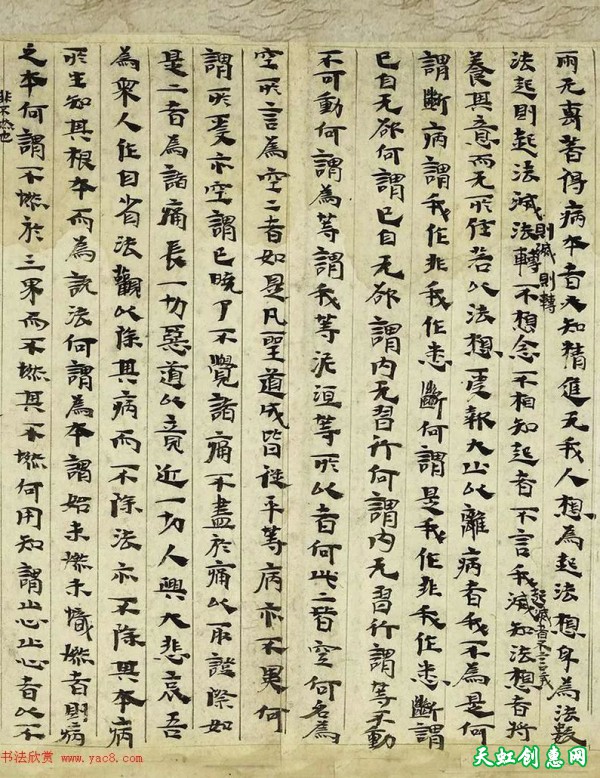 雨无專著得病本者必知精進无我人想為起法想身為法數
法起則起法滅法轉不想念不相知起者不言我滅知法想者將
則滅 則轉
起滅者不言我
養其意而无所住若以法想受報大山以離病者我不為是何
謂斷病謂我作非我作悉斷何謂是我作非我作悉斷謂
已自无欲何謂已自无欲謂内无習行何謂内无習行謂等不動
不可動何謂為等謂我等泥洹等所以者何此二皆空何名為
空所言為空二者如是凡聖道成皆從平等病亦不異何
謂所受亦空謂已曉了不覺諸痛不盡於痛以取證際如
是二者為諸痛長一切惡道以竟近一切人興大悲哀吾
為衆人作自省法觀以除其病而不除法亦不除其本病
所生知其根本而為說法何謂為本謂始未然未熾然者則病
之本何謂不然於三界而不然其不然何用知謂止心止心者以不
非不然也
书法欣赏 www.yac8.com
天虹创惠网